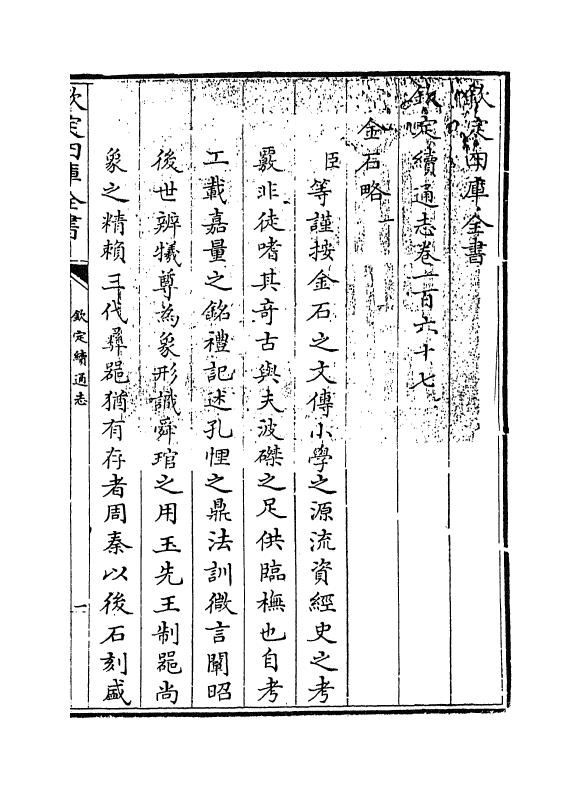 欽定四庫全書
欽定續通志卷一百六十七
金石略
臣等謹按金石之文傳小學之源流資經史之考
覈非徒嗜其奇古與夫波磔之足供臨橅也自考
工載嘉量之銘禮記述孔悝之鼎法訓微言闡昭
後世辨犧尊為象形識舜琯之用玉先王制器尚
象之精賴三代彞器猶有存者周秦以後石刻盛
欽定四庫全書
欽定續通志
一